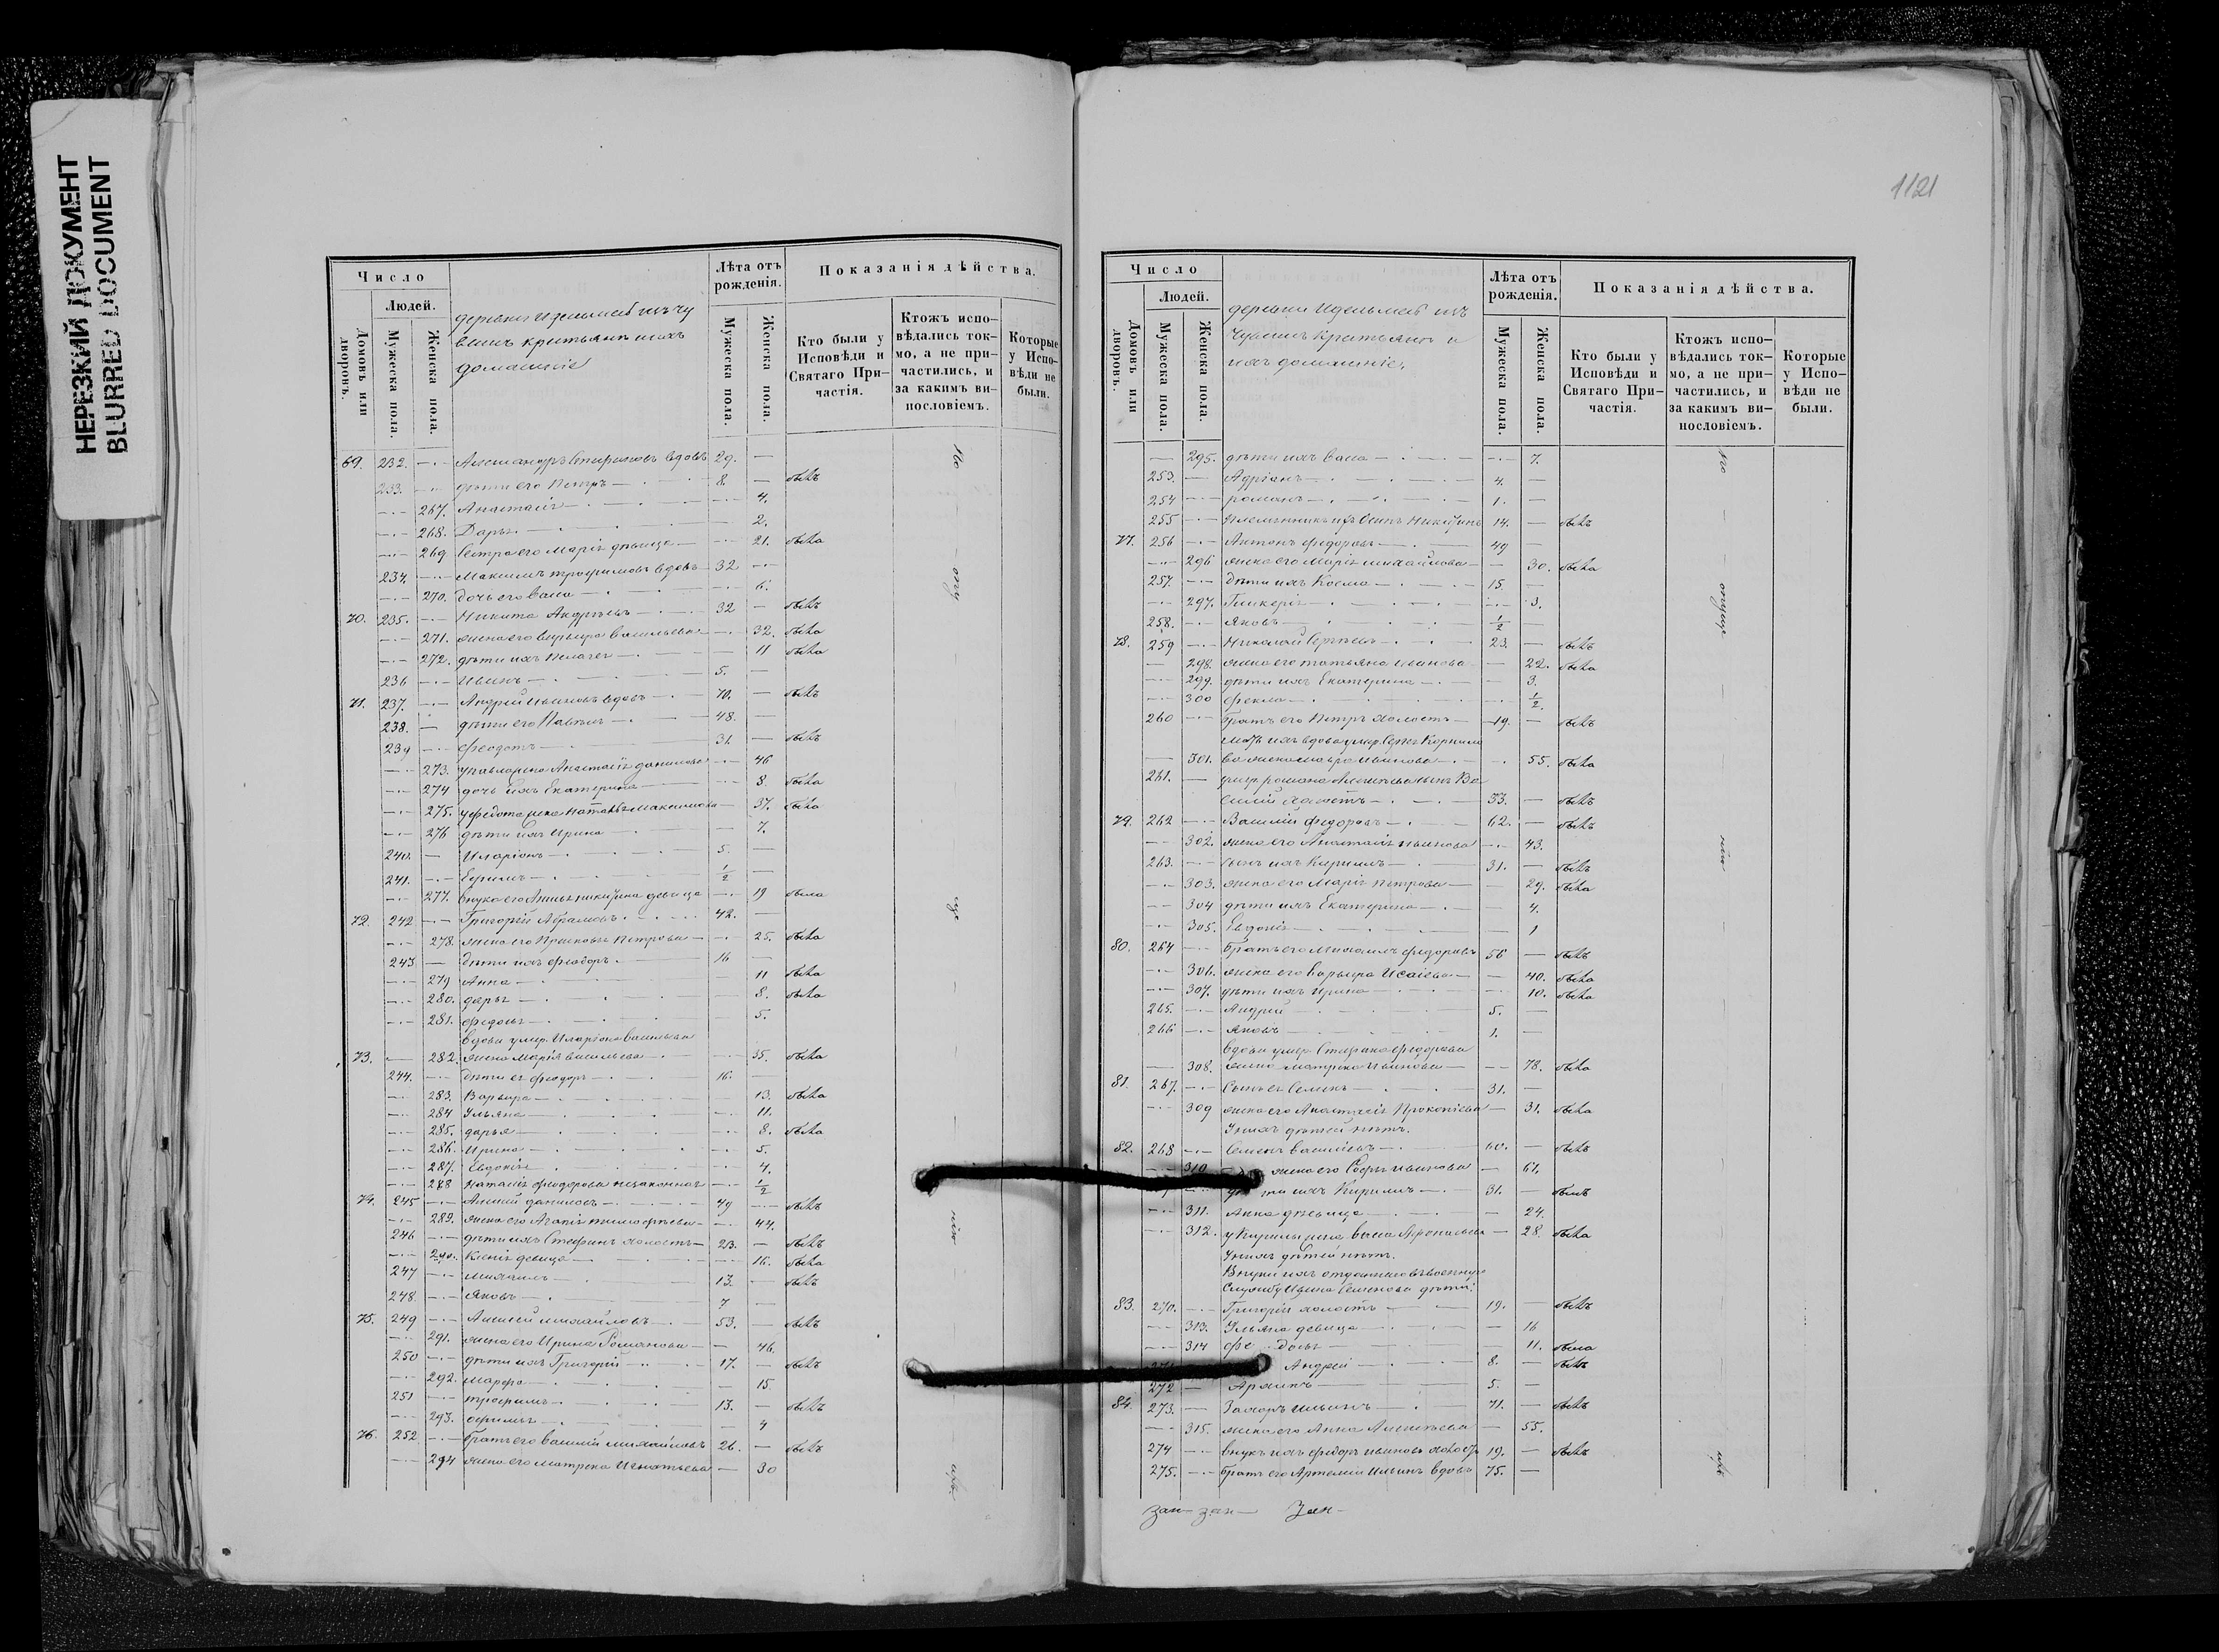 НЕРЕЗКИЙ ДОКУМЕНТ
BLURRED DOCUMENT
Число
Людей.
Домовъ или дворовъ.
Мужеска пола.
Женска пола.
домашніе
Лѣта отъ рожденія.
Мужеска пола.
Женска пола.
Показанія дѣйства.
Кто были у Исповѣди и Святаго Причастія.
Ктожъ исповѣдались токмо, а не причастились, и за какимъ винословіемъ.
Которые у Исповѣди не были.
69. 232. Александръ вдовъ 29.
233. дѣти его Петръ 8. былъ
267. Анастасія 4.
268. Дарья 2.
269 Сестра его Марія дѣвица 21. была
234. Максимъ Трофимовъ вдовъ 32
270. дочь его 6.
70. 235. Никита Андреевъ 32 былъ
271. жена его Варвара Васильева 32. была
272. дѣти ихъ Пелагея 11 была
236 Иванъ 5.
71. 237. Андрей Ивановъ вдовъ 70. былъ
238. дѣти его Павелъ 48.
239 Феодотъ 31. былъ
273. у Павла жена Анастасія Данилова 46
274 дочь ихъ Екатерина 8 была
275. у Федота жена Наталья Максимова 37. была
276 дѣти ихъ Ирина 7.
240. Иларіонъ 5.
241. Ефимъ ½
277. внука его девица 19 была
72. 242 Григорій Абрамовъ 42.
278. жена его Прасковья Петрова 25. была
243 дѣти ихъ Феодоръ 16
279 Анна 11 была
280. дарья 8. была
281. Федосья 5.
вдова умер. Иларіона Васильева
73. 282. жена Марія Васильева 35. была
244. дѣти ея Феодоръ 16.
283. Варвара 13. была
284 Ульяна 11.
285. дарья 8. была
286. Ирина 5.
287. Евдокія 4.
288 Наталія Феодорова незаконная ½
74. 245 Алексей Даниловъ 49 былъ
289. жена его Агапія Тимофеева 44.
246 дѣти ихъ Стефанъ холостъ 23. былъ
290. Ксенія девица 16. была
247 Михаилъ 13. былъ
248. Яковъ 7
75. 249 Алексей Михайловъ 53. былъ
291. жена его Ирина Романова 46.
250 дѣти ихъ Григорій 17. былъ
292. Марфа 15.
251 Трофимъ 13. былъ
293. 4
76. 252 братъ его Василій Михайловъ 26. былъ
294 жена его Матрена Игнатьева 30
1121
Число
Людей.
Домовъ или дворовъ.
Мужеска пола.
Женска пола.
Чувашъ крестьянъ и
ихъ домашніе.
Лѣта отъ рожденія.
Мужеска пола.
Женска пола.
Показанія дѣйства.
Кто были у Исповѣди и Святаго Причастія.
Ктожъ исповѣдались токмо, а не причастились, и за какимъ винословіемъ.
Которые у Исповѣди не были.
295. дѣти ихъ 7.
253. Адріанъ 4.
254 романъ 1.
255 племянникъ ихъ Осипъ 14. былъ
77. 256 Антонъ Федоровъ 49
296 жена его Марія Михайлова 30. была
257. дѣти ихъ Косма 15.
297. Гликерія 3.
258. Яковъ ½
78. 259 Николай Сергѣевъ 23. былъ
298. жена его Татьяна Иванова 22. была
299. дѣти ихъ Екатерина 3.
300 Фекла ½
260 братъ его Петръ холостъ 19. былъ
мать ихъ вдова умер. Сергея Корнило
301. ва жена Иванова 55. была
261. умер. романа Алексѣева сынъ Ва
силій холостъ 33. былъ
79. 262 Василій Федоровъ 62. былъ
302. жена его Анастасія Иванова 43.
263. сынъ ихъ Кирилъ 31. былъ
303. жена его Марія Петрова 29. была
304 дѣти ихъ Екатерина 4.
305. Евдокія 1
80. 264 братъ его Михаилъ Федоровъ 56 былъ
306. жена его Варвара Исаіева 40. была
307. дѣти ихъ Ирина 10. была
265. Андрей 5.
266 Яковъ 1.
вдова умер. Федорова
308. жена Матрена Иванова 78. была
81. 267. Сынъ ея Семенъ 31.
309 жена его Анастасія Прокопіева 31. была
У нихъ дѣтей нѣтъ.
82. 268 Семенъ Васильевъ 60. былъ
310 жена его Иванова 61.
ти ихъ Кирилъ 31. былъ
311. Анна дѣвица 24.
312. у Кирилы жена 28. была
У нихъ дѣтей нѣтъ.
Внуки ихъ отданнаго въ военную
Службу Ивана Семенова дѣти:
83. 270. Григорій холостъ 19. былъ
313. Ульяна девица 16
314 Федосья 11. была
Андрей 8. былъ
272 Архипъ 5.
84. 273. Захаръ Ильинъ 71. былъ
315. жена его Анна Алексѣева 55.
274 внукъ ихъ Федоръ Ивановъ холостъ 19. былъ
275. братъ его Артемій Ильинъ вдовъ 75.